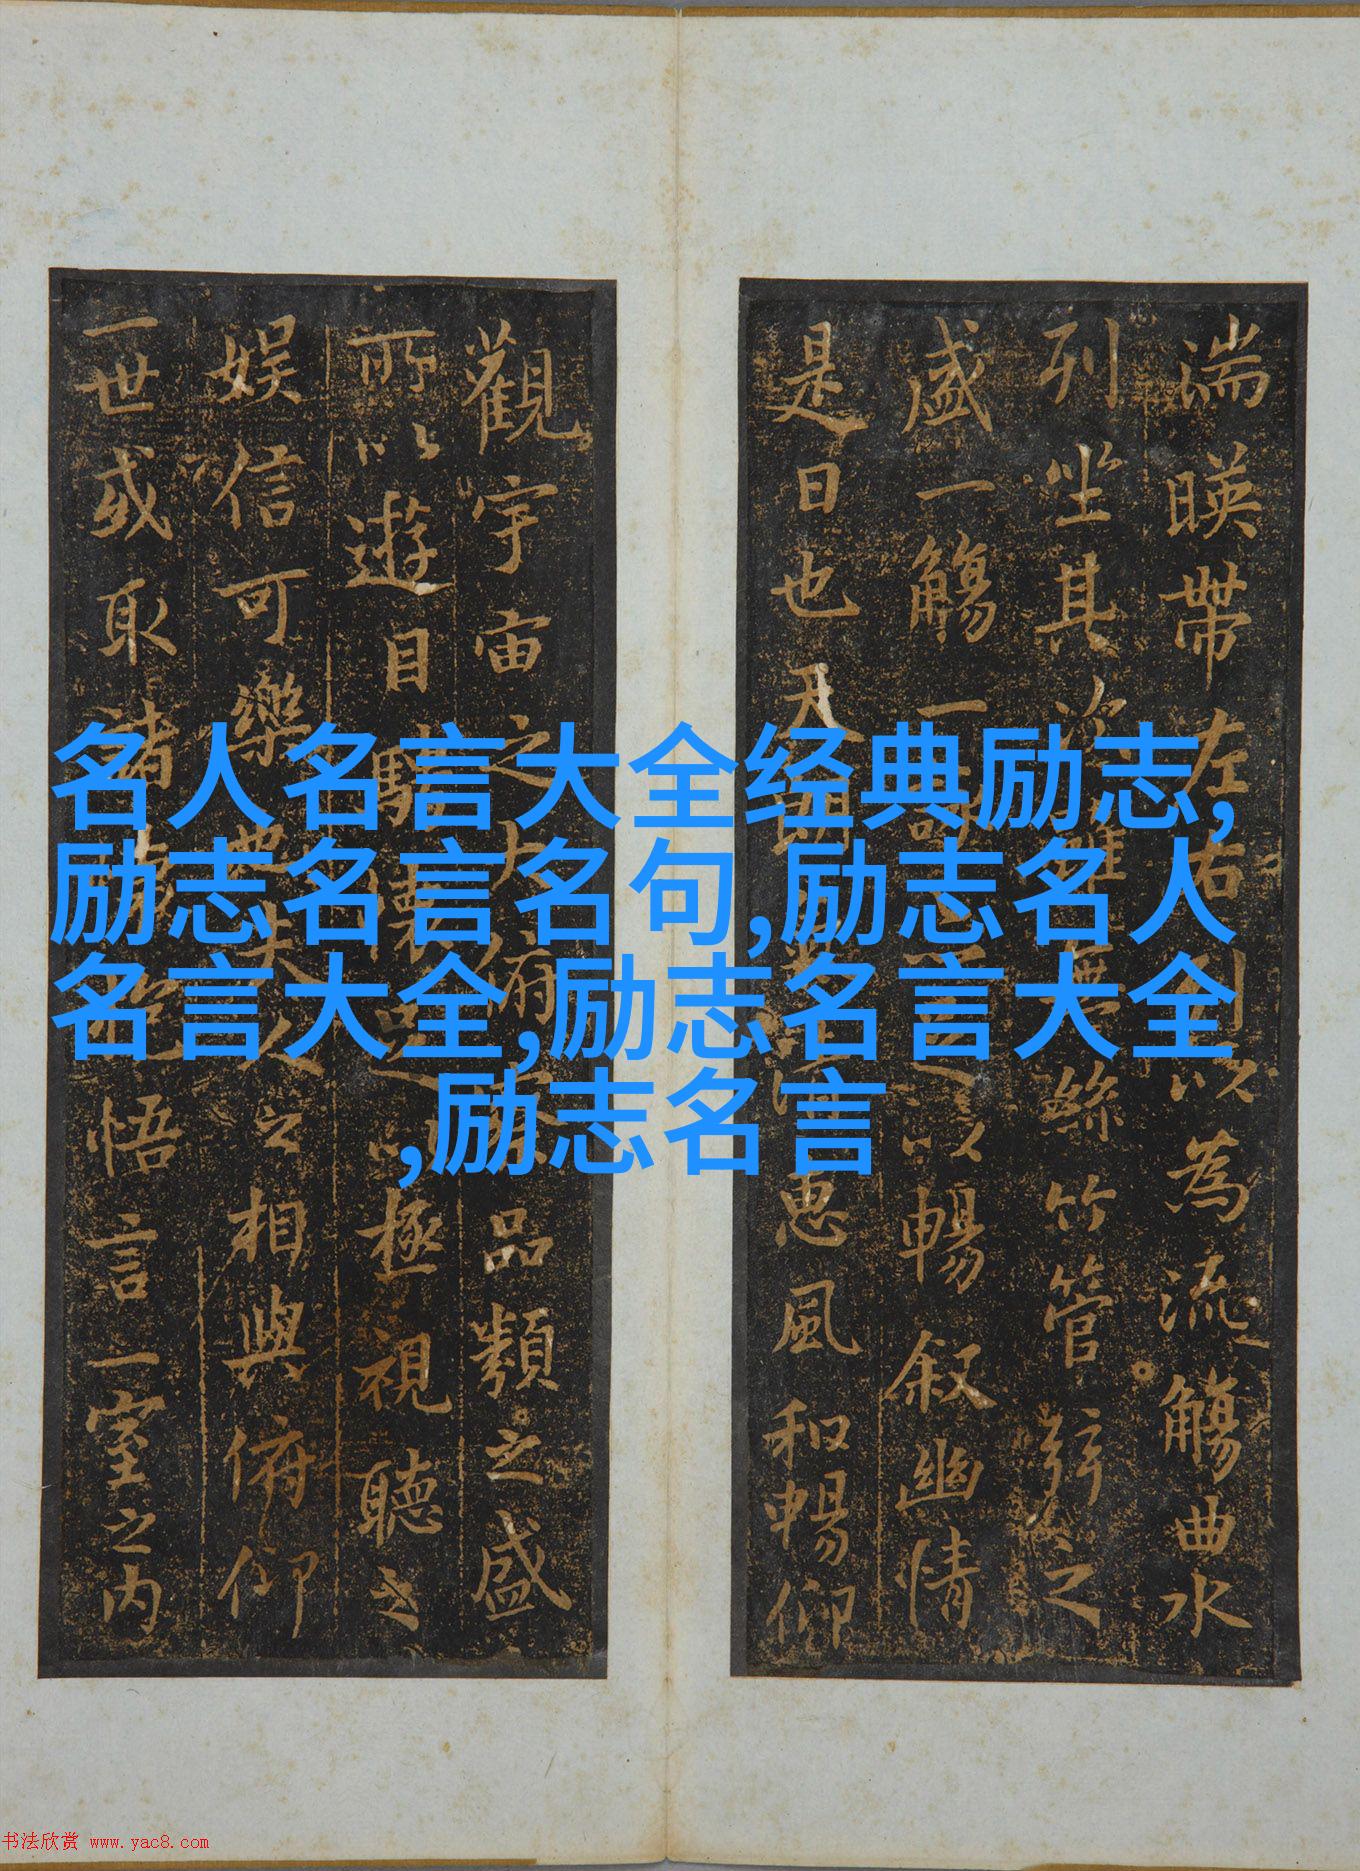 湍暎帶左右引以為流觴曲水
列坐其次雖無絲竹管弦之
盛一觴一詠亦足以暢叙幽情
是日也天朗氣清惠風和暢仰
觀宇宙之大俯察品類之盛
所以遊目騁懷足以極視聽之
娱信可樂也夫人之相與俯仰
一世或取諸懷抱悟言一室之内
名人名言大全经典励志,
励志名言名句,励志名人
名言大全,励志名言大全
,励志名言
书法欣赏 www.yac8.com